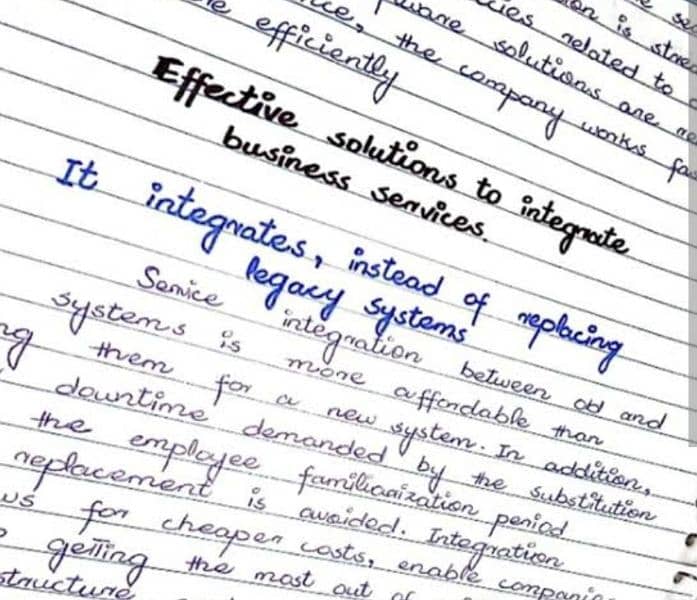 is
related to
solutions are
the company works
efficiently
Effective solutions to integrate
business services.
It integrates, instead of replacing
legacy systems
Service integration between old and
systems is more affordable than
them for a new system. In addition,
downtime demanded by the substitution
the employee familiarization period
replacement is avoided. Integration
for cheaper costs, enable
getting the most out of
structure